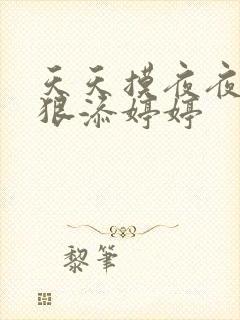 天天摸夜夜
狠添婷婷
黎笔